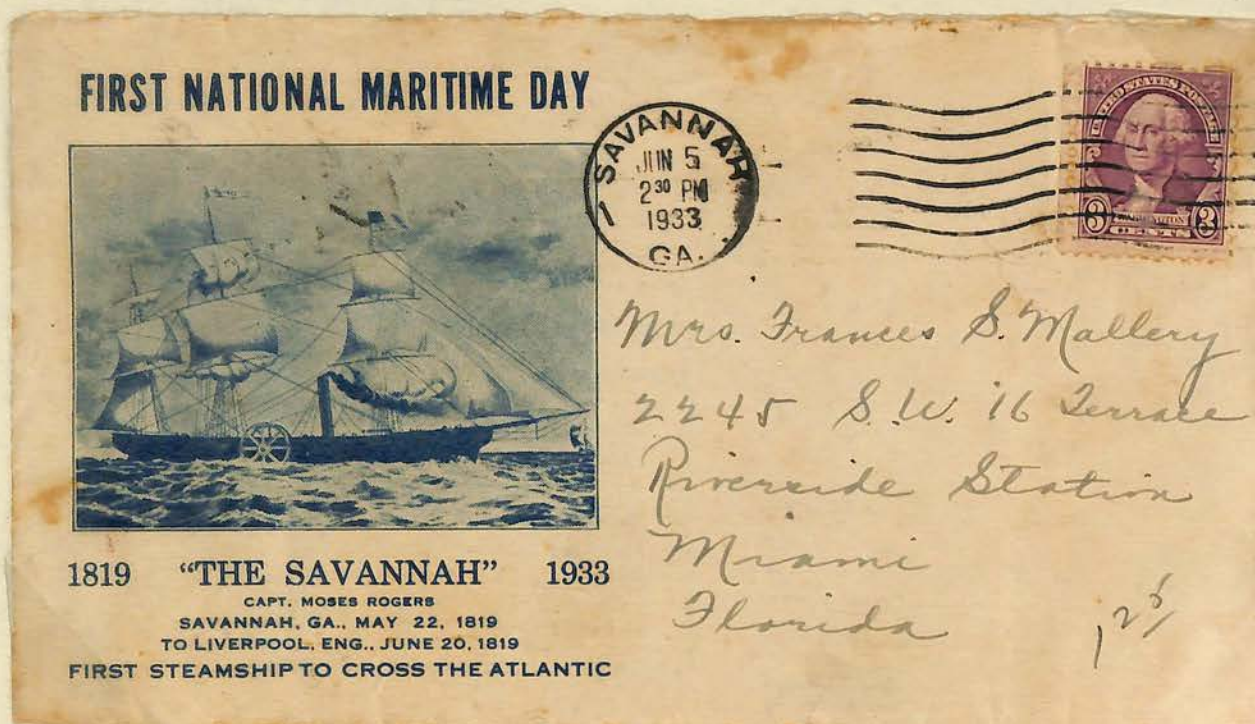 FIRST NATIONAL MARITIME DAY
SAVANNAH
JUN 5
2 30 PM
1933
GA.
UNITED STATES POSTAGE
3 WASHINGTON 3
CENTS
Mrs. Frances S. Mallery
2245 S.W. 16 Terrace
Riverside Station
Miami
Florida
1819 "THE SAVANNAH" 1933
CAPT. MOSES ROGERS
SAVANNAH, GA., MAY 22, 1819
TO LIVERPOOL, ENG., JUNE 20, 1819
FIRST STEAMSHIP TO CROSS THE ATLANTIC